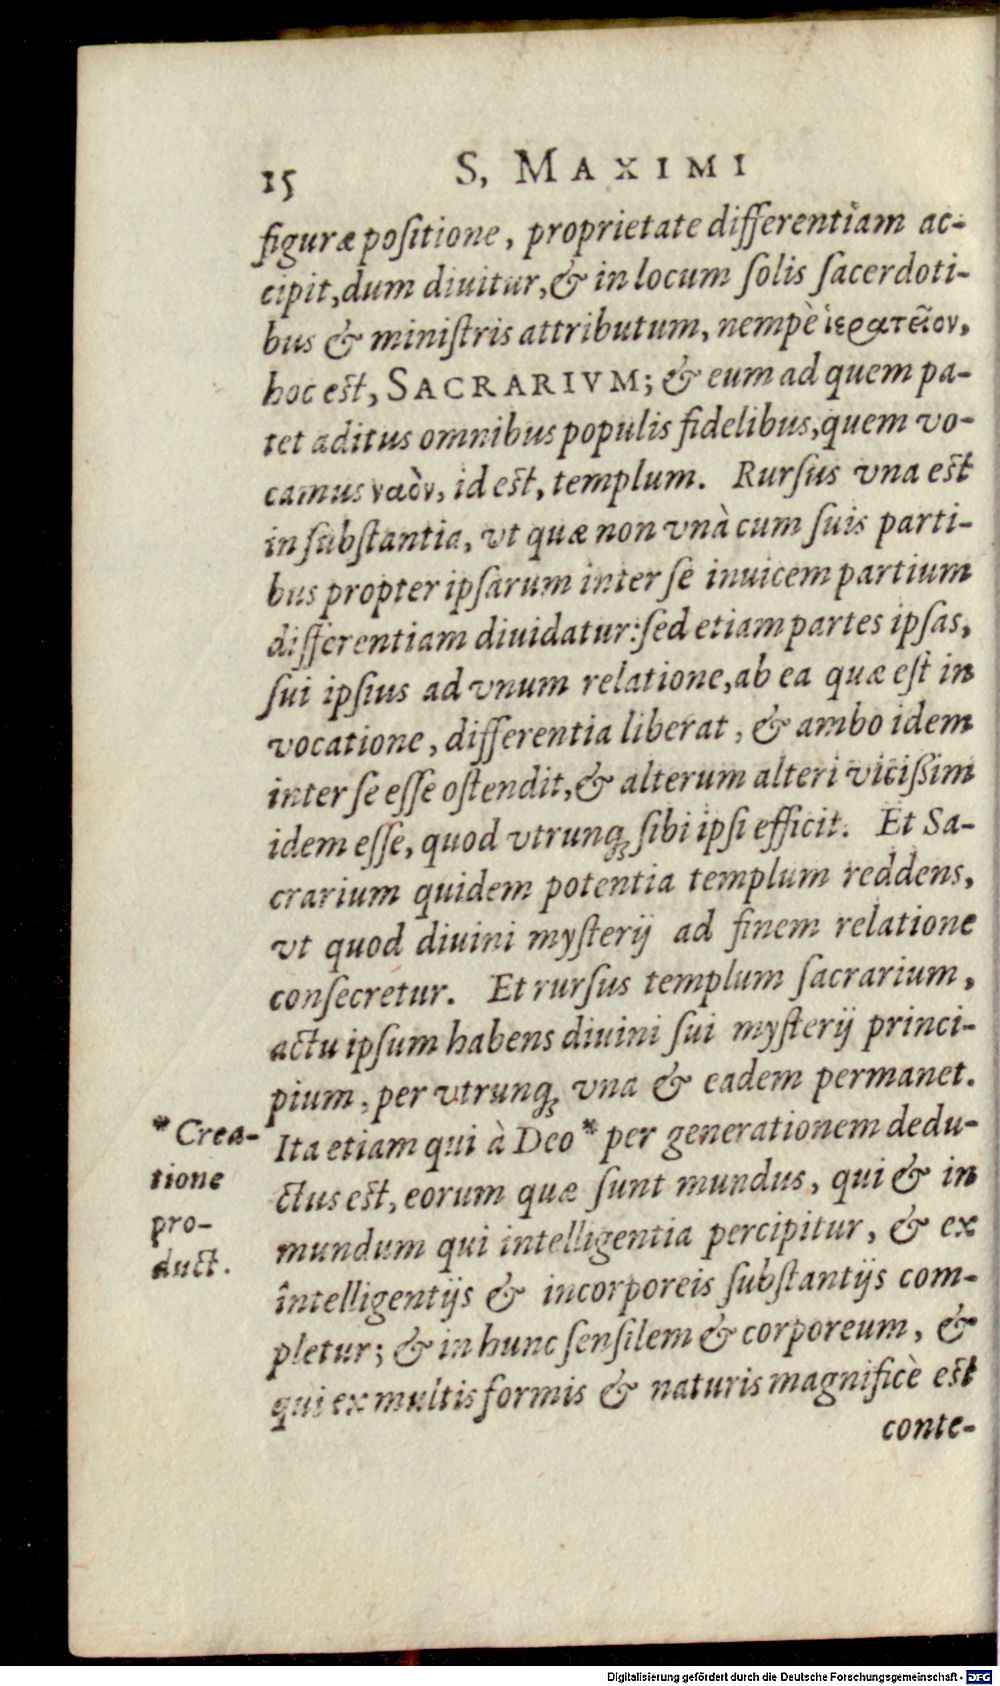 15 S. MAXIMI
figuræ poſitione, proprietate differentiam ac-
cipit, dum diuitur, & in locum ſolis ſacerdoti-
bus & miniſtris attributum, nempè ἱερατεῖον,
hoc eſt, SACRARIVM; & eum ad quem pa-
tet aditus omnibus populis fidelibus, quem vo-
camus ναὸν, id eſt, templum. Rurſus vna eſt
in ſubſtantia, vt quæ non vnà cum ſuis parti-
bus propter ipſarum inter ſe inuicem partium
differentiam diuidatur: ſed etiam partes ipſas,
ſui ipſius ad vnum relatione, ab ea quæ eſt in
vocatione, differentia liberat, & ambo idem
inter ſe eſſe oſtendit, & alterum alteri viciſſim
idem eſſe, quod vtrunq; ſibi ipſi efficit. Et Sa-
crarium quidem potentia templum reddens,
vt quod diuini myſterij ad finem relatione
conſecretur. Et rurſus templum ſacrarium,
actu ipſum habens diuini ſui myſterij princi-
pium, per vtrunq; vna & eadem permanet.
Ita etiam qui à Deo* per generationem dedu-
ctus eſt, eorum quæ ſunt mundus, qui & in
mundum qui intelligentia percipitur, & ex
întelligentijs & incorporeis ſubſtantijs com-
pletur; & in hunc ſenſilem & corporeum, &
qui ex multis formis & naturis magnificè eſt
conte-
* Crea-
tione
pro-
duct.
Digitalisierung gefördert durch die Deutsche Forschungsgemeinschaft - DFG